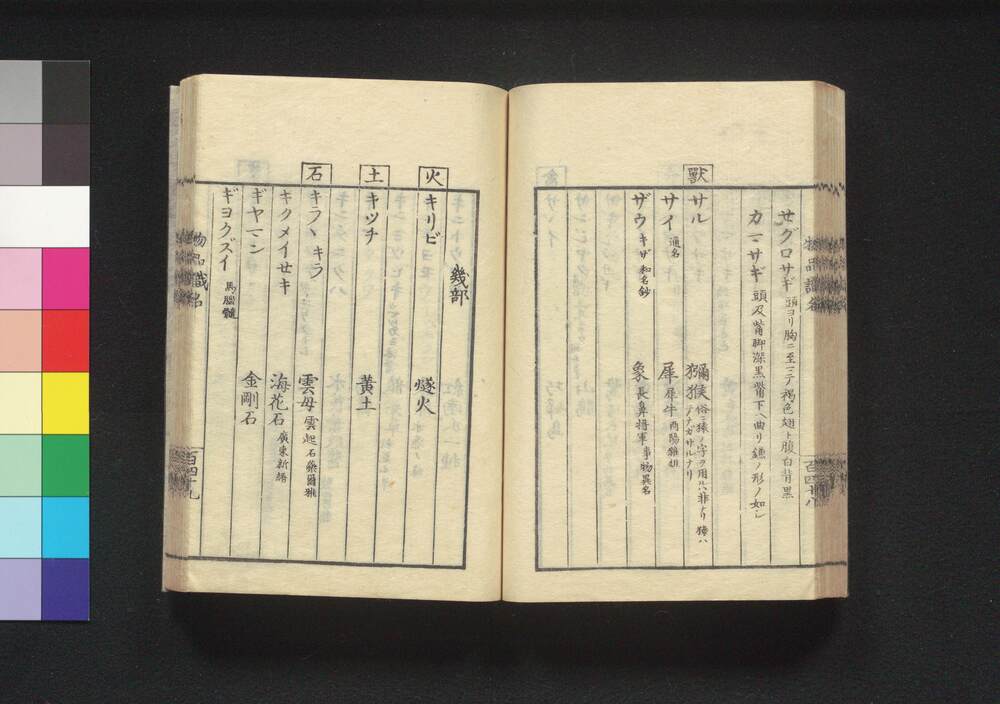 セグロサギ 頭ヨリ胸ニ至マテ褐色翅ト腹白背黒
カマサギ 頭及觜脚深黒觜下ヘ曲リ鎌ノ形ノ如シ
獸
サル 獼猴 俗ニ猿ノ字ヲ用ルハ非ナリ猿ハテナガザルナリ
サイ 通名 犀 犀牛 酉陽雜俎
ザウ キザ 和名鈔 象 長鼻将軍 事物異名
物品識名
百四十八
幾部
火
キリビ 燧火
土
キツチ 黄土
石
キラヽ キラ 雲母 雲起石 藥爾雅
キクメイセキ 海花石 廣東新語
ギヤマン 金剛石
ギヨクズイ 馬腦髓
物品識名
百四十九